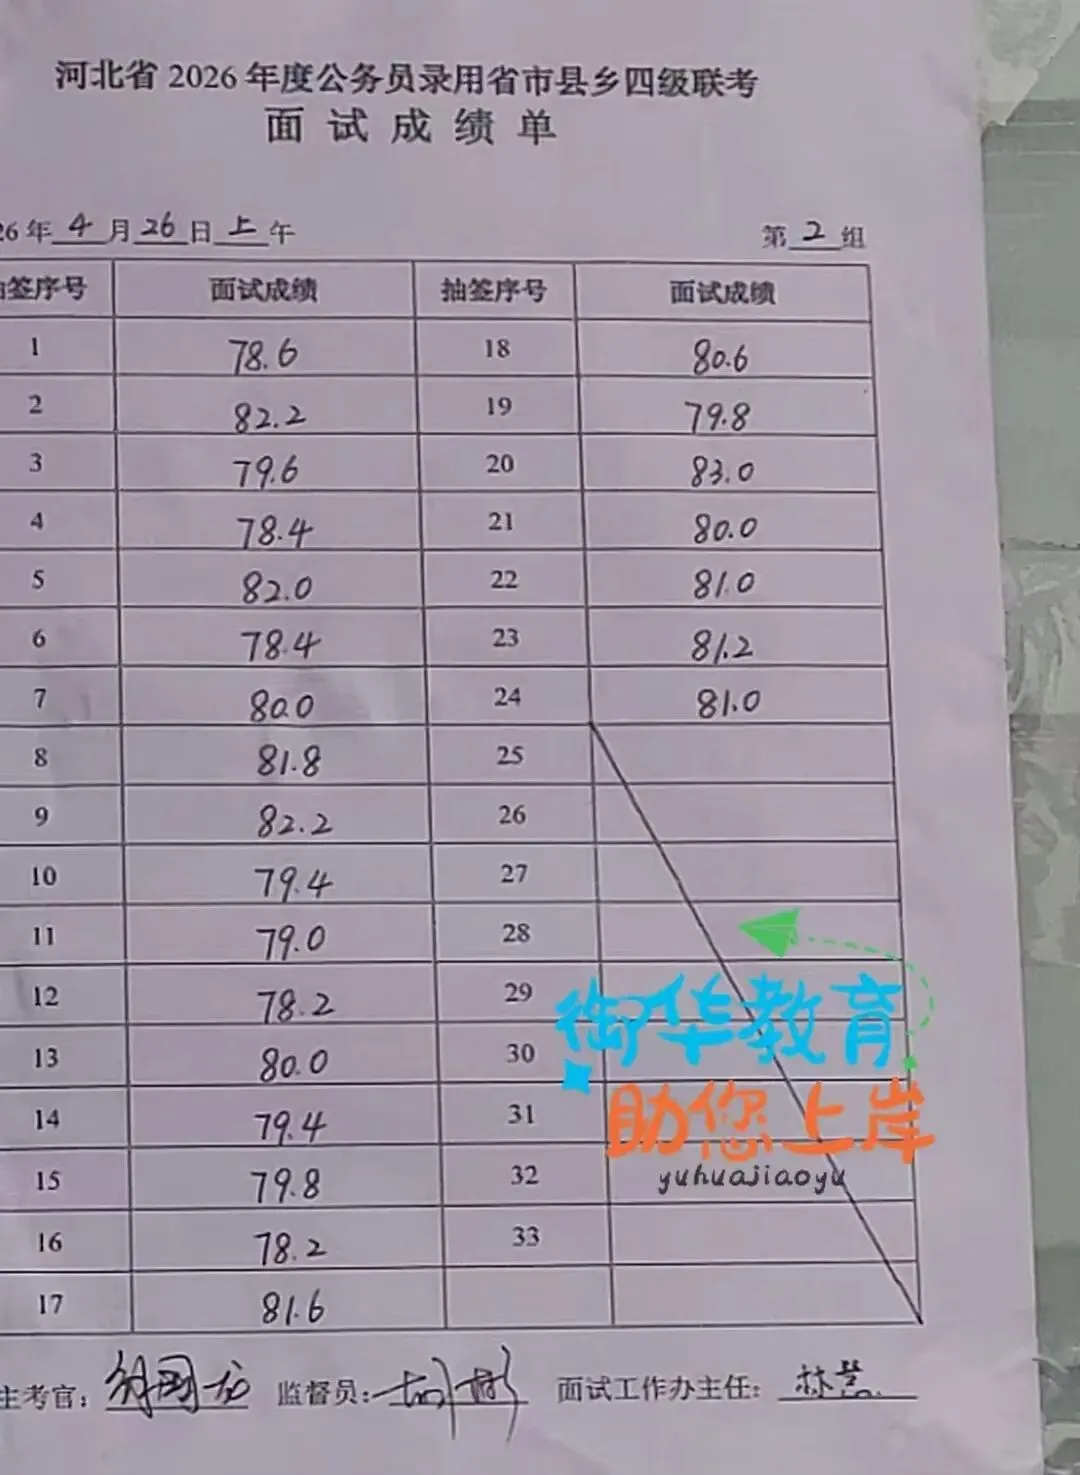 河北省 2026 年度公务员录用省市县乡四级联考
面 试 成 绩 单
26 年 4 月 26 日 上 午 第 2 组
签序号 面试成绩 抽签序号 面试成绩
1 78.6 18 80.6
2 82.2 19 79.8
3 79.6 20 83.0
4 78.4 21 80.0
5 82.0 22 81.0
6 78.4 23 81.2
7 80.0 24 81.0
8 81.8 25
9 82.2 26
10 79.4 27
11 79.0 28
12 78.2 29
13 80.0 30
14 79.4 31
15 79.8 32
16 78.2 33
17 81.6
御华教育
助您上岸
yuhuajiaoyu
主考官: 监督员: 面试工作办主任: 林